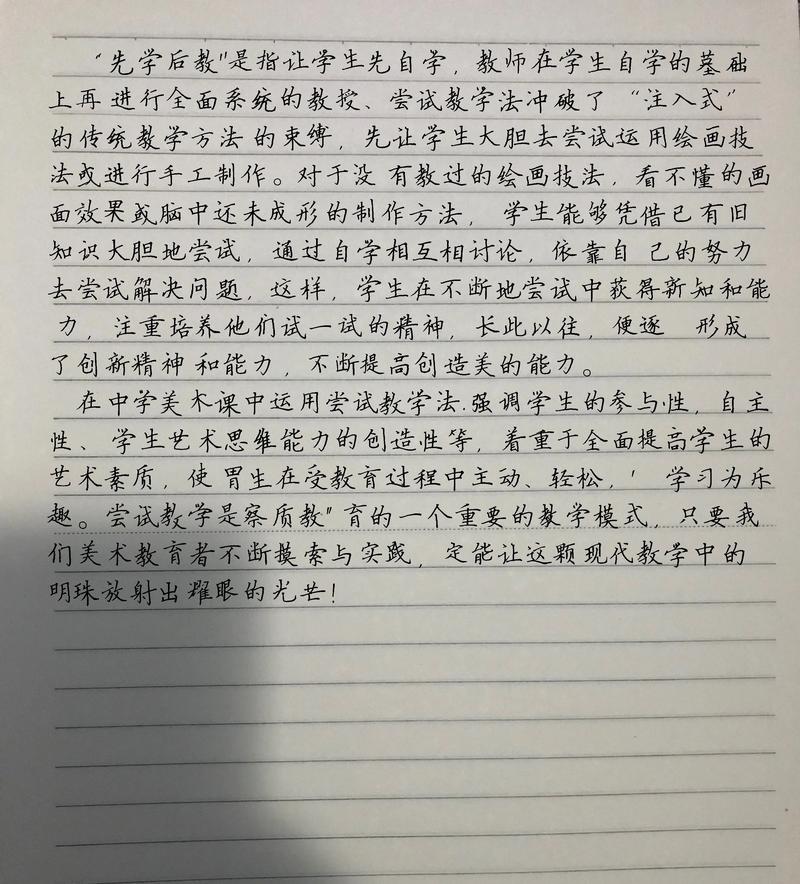 “先学后教"是指让学生先自学，教师在学生自学的基础
上再进行全面系统的教授、尝试教学法冲破了“注入式”
的传统教学方法的束缚，先让学生大胆去尝试运用绘画技
法或进行手工制作。对于没有教过的绘画技法，看不懂的画
面效果或脑中还未成形的制作方法，学生能够凭借已有旧
知识大胆地尝试，通过自学相互相讨论，依靠自己的努力
去尝试解决问题，这样，学生在不断地尝试中获得新知和能
力，注重培养他们试一试的精神，长此以往，便逐 形成
了创新精神和能力，不断提高创造美的能力。
在中学美术课中运用尝试教学法.强调学生的参与性，自主
性、学生艺术思维能力的创造性等，着重于全面提高学生的
艺术素质，使胃生在受教育过程中主动、轻松，' 学习为乐
趣。尝试教学是察质教"育的一个重要的教学模式，只要我
们美术教育者不断摸索与实践，定能让这颗现代教学中的
明珠放射出耀眼的光芒！